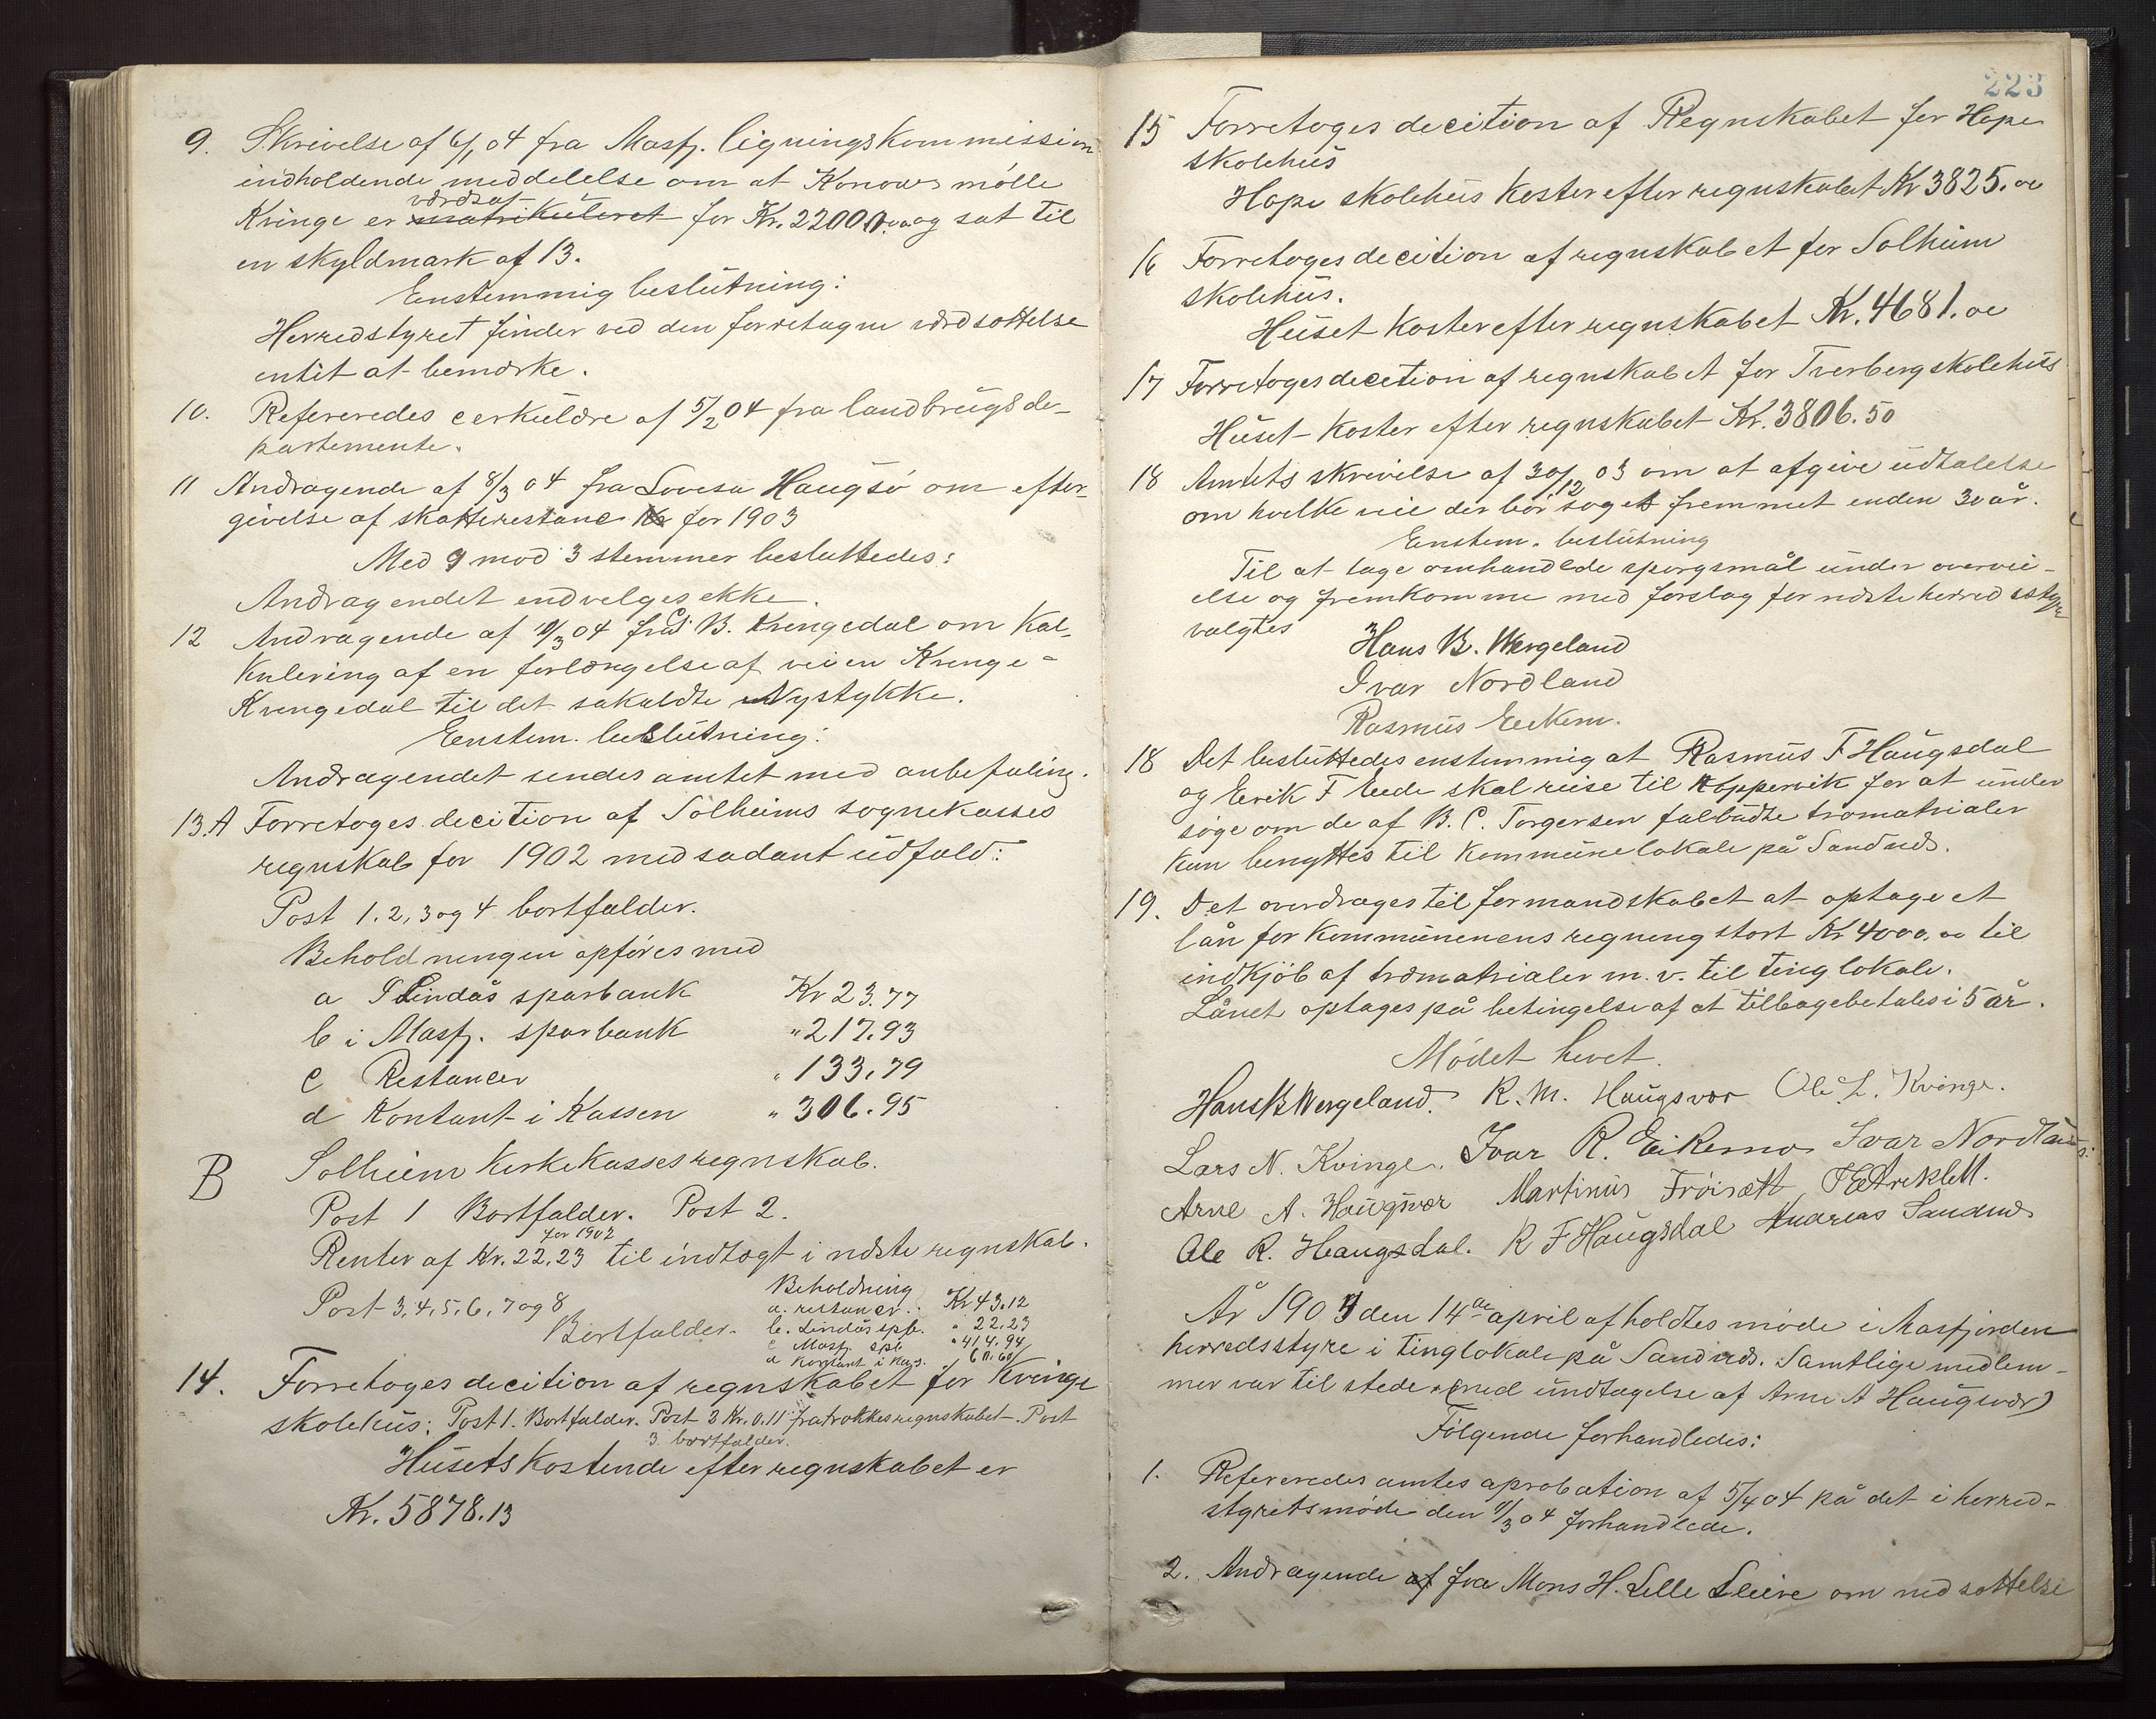 9. Skrivelse af 6/1 04 fra Masfj. ligningskommission
indholdende meddelelse om at Konows mølle
værdsat
Kvinge er matrikuleret for Kr. 22000.00 og sat til
en skyldmark af 13.
Eenstemmig beslutning:
Herredstyret finder ved den forretagne værdsættelse
intet at bemærke.
10. Refereredes cerkulære af 5/2 04 fra landbrugsde-
partemente.
11 Andragende af 8/3 04 fra Lovisa Haugsø om efter-
givelse af skatterestanc for 1903
Med 9 mod 3 stemmer besluttedes:
Andragendet indvelges ekke.
12 Andragende af 11/3 04 fra B. Kringedal om Kal-
kulering af en forlængelse af veien Kvinge-
Kvingedal til det sakaldte Nystykke.
Eenstem. beslutning:
Andragendet sendes amtet med anbefaling.
13.A Forretoges decition af Solheims sognekasses
regnskab for 1902 med sadant udfald:
Post 1. 2, 3 og 4 bortfalder.
Beholdningen opføres med
a I Lindås sparbank Kr 23.77
b i Masfj. sparbank " 217.93
c Restancer " 133.79
d Kontant i Kassen " 306.95
B Solheim Kirkekasses regnskab.
Post 1 Bortfalder. Post 2.
for 1902
Renter af Kr. 22,23 til indtægt i næste regnskab.
Post 3, 4, 5, 6, 7 og 8
Bortfalder.
Beholdning
a. restancer.. Kr 43.12
b. Lindås spb. " 22.23
c Masfj. spb " 414.94
d Kontant i Kas.
14. Forretoges decition af regnskabet for Kvinge
skolehus: Post 1. Bortfalder. Post 2 Kr. 0.11 fratrækkes regnskabet. Post
3 bortfalder.
Husets kostende efter regnskabet er
Kr. 5878.13
223
15 Forretoges decition af Regnskabet for Hope
skolehus
Hope skolehus koster efter regnskabet Kr 3825.00
16 Forretoges decition af regnskabet for Solheim
skolehus.
Huset koster efter regnskabet Kr. 4681.00
17 Forretoges decition af regnskabet for Tverberg skolehus
Huset koster efter regnskabet Kr. 3806.50
18 Amtets skrivelse af 30/12 03 om at afgive udtalelse
om hvilke veie der bør søges fremmet enden 30 år.
Enstem. beslutning
Til at tage omhandlede spørgsmål under overvei-
else og fremkomme med forslag for næste herredsstyre
valgtes
Hans B. Wergeland
Ivar Nordland
Rasmus Eeikem.
18 Det besluttedes enstemmig at Rasmus F Haugsdal
og Eerik F Eede skal reise til Koppervik for at under
søge om de af B. C. Torgersen falbudte træmatrialer
kan benyttes til kommunelokale på Sandnæs.
19. Det overdrages til formandskabet at optage et
lån for kommunenens regning stort Kr 4000.00 til
indkjøb af træmatrialer m. v. til tinglokale.
Lånet optages på betingelse af at tilbagebetales i 5 år.
Mødet hevet.
Hans B Wergeland. R. M. Haugsvær Ole L. Kvinge.
Lars N. Kvinge. Ivar R. Eikemo Ivar Nordland
Arne A. Haugsvær Martinus Frøisett
Ole R. Haugsdal. R F Haugsdal Andreas Sandnes
År 1904 den 14de april afholdtes møde i Masfjorden
herredsstyre i tinglokale på Sandnæs. Samtlige medlem-
mer var til stede (med undtagelse af Arne A Haugsvær)
Følgende forhandledes:
1. Refereredes amtes aprobation af 5/4 04 på det i herred-
styretsmøde den 11/3 04 forhandlede.
2. Andragende af fra Mons H. Lille Leire om nedsættelse